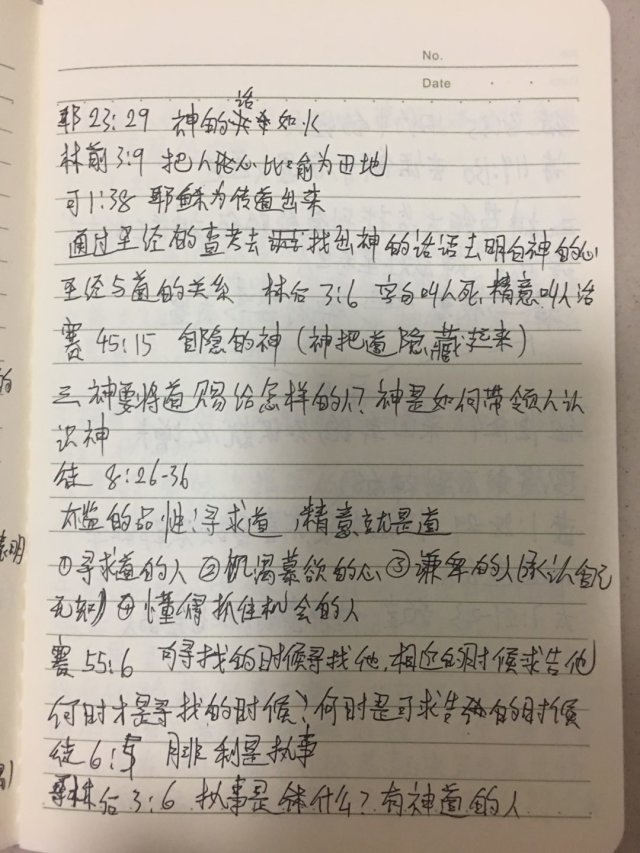 No.
Date
耶 23:29 神的话如火
林前 3:9 把人比喻为田地
可 1:38 耶稣为传道出来
通过圣经的查考去找出神的话语去明白神的心
圣经与道的关系 林后 3:6 字句叫人死,精意叫人活
赛 45:15 自隐的神(神把道隐藏起来)
三 神要将道赐给怎样的人?神是如何带领人认
识神
徒 8:26-36
太监的品性:寻求道,精意就是道
①寻求道的人 ②饥渴慕欲的心 ③谦卑的人(承认自己
无知) ④懂得抓住机会的人
赛 55:6 可寻找的时候寻找他,相近的时候求告他
何时才是寻找的时候?何时是可求告的时候
徒 6:5 腓利是执事
林后 3:6 执事是什么?有神道的人